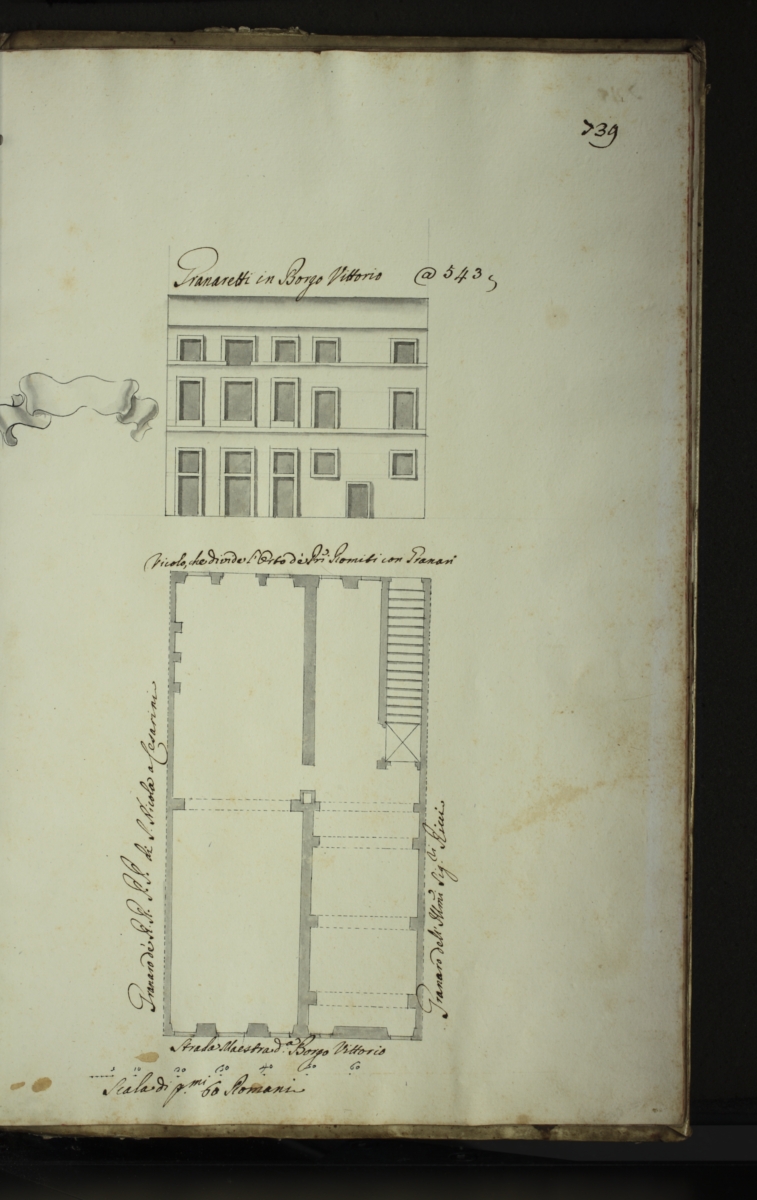 739
Granaretti in Borgo Vittorio @ 543
Vicolo, che divide l'Orto de' Pri Romiti con Granari
Granaro de' R. R. P. P. di S. Nicola a Cesarini
Granaro delli Illmi Sigri Ricci
Strada Maestra da Borgo Vittorio
5 10 20 30 40 50 60
Scala di pmi 60 Romani